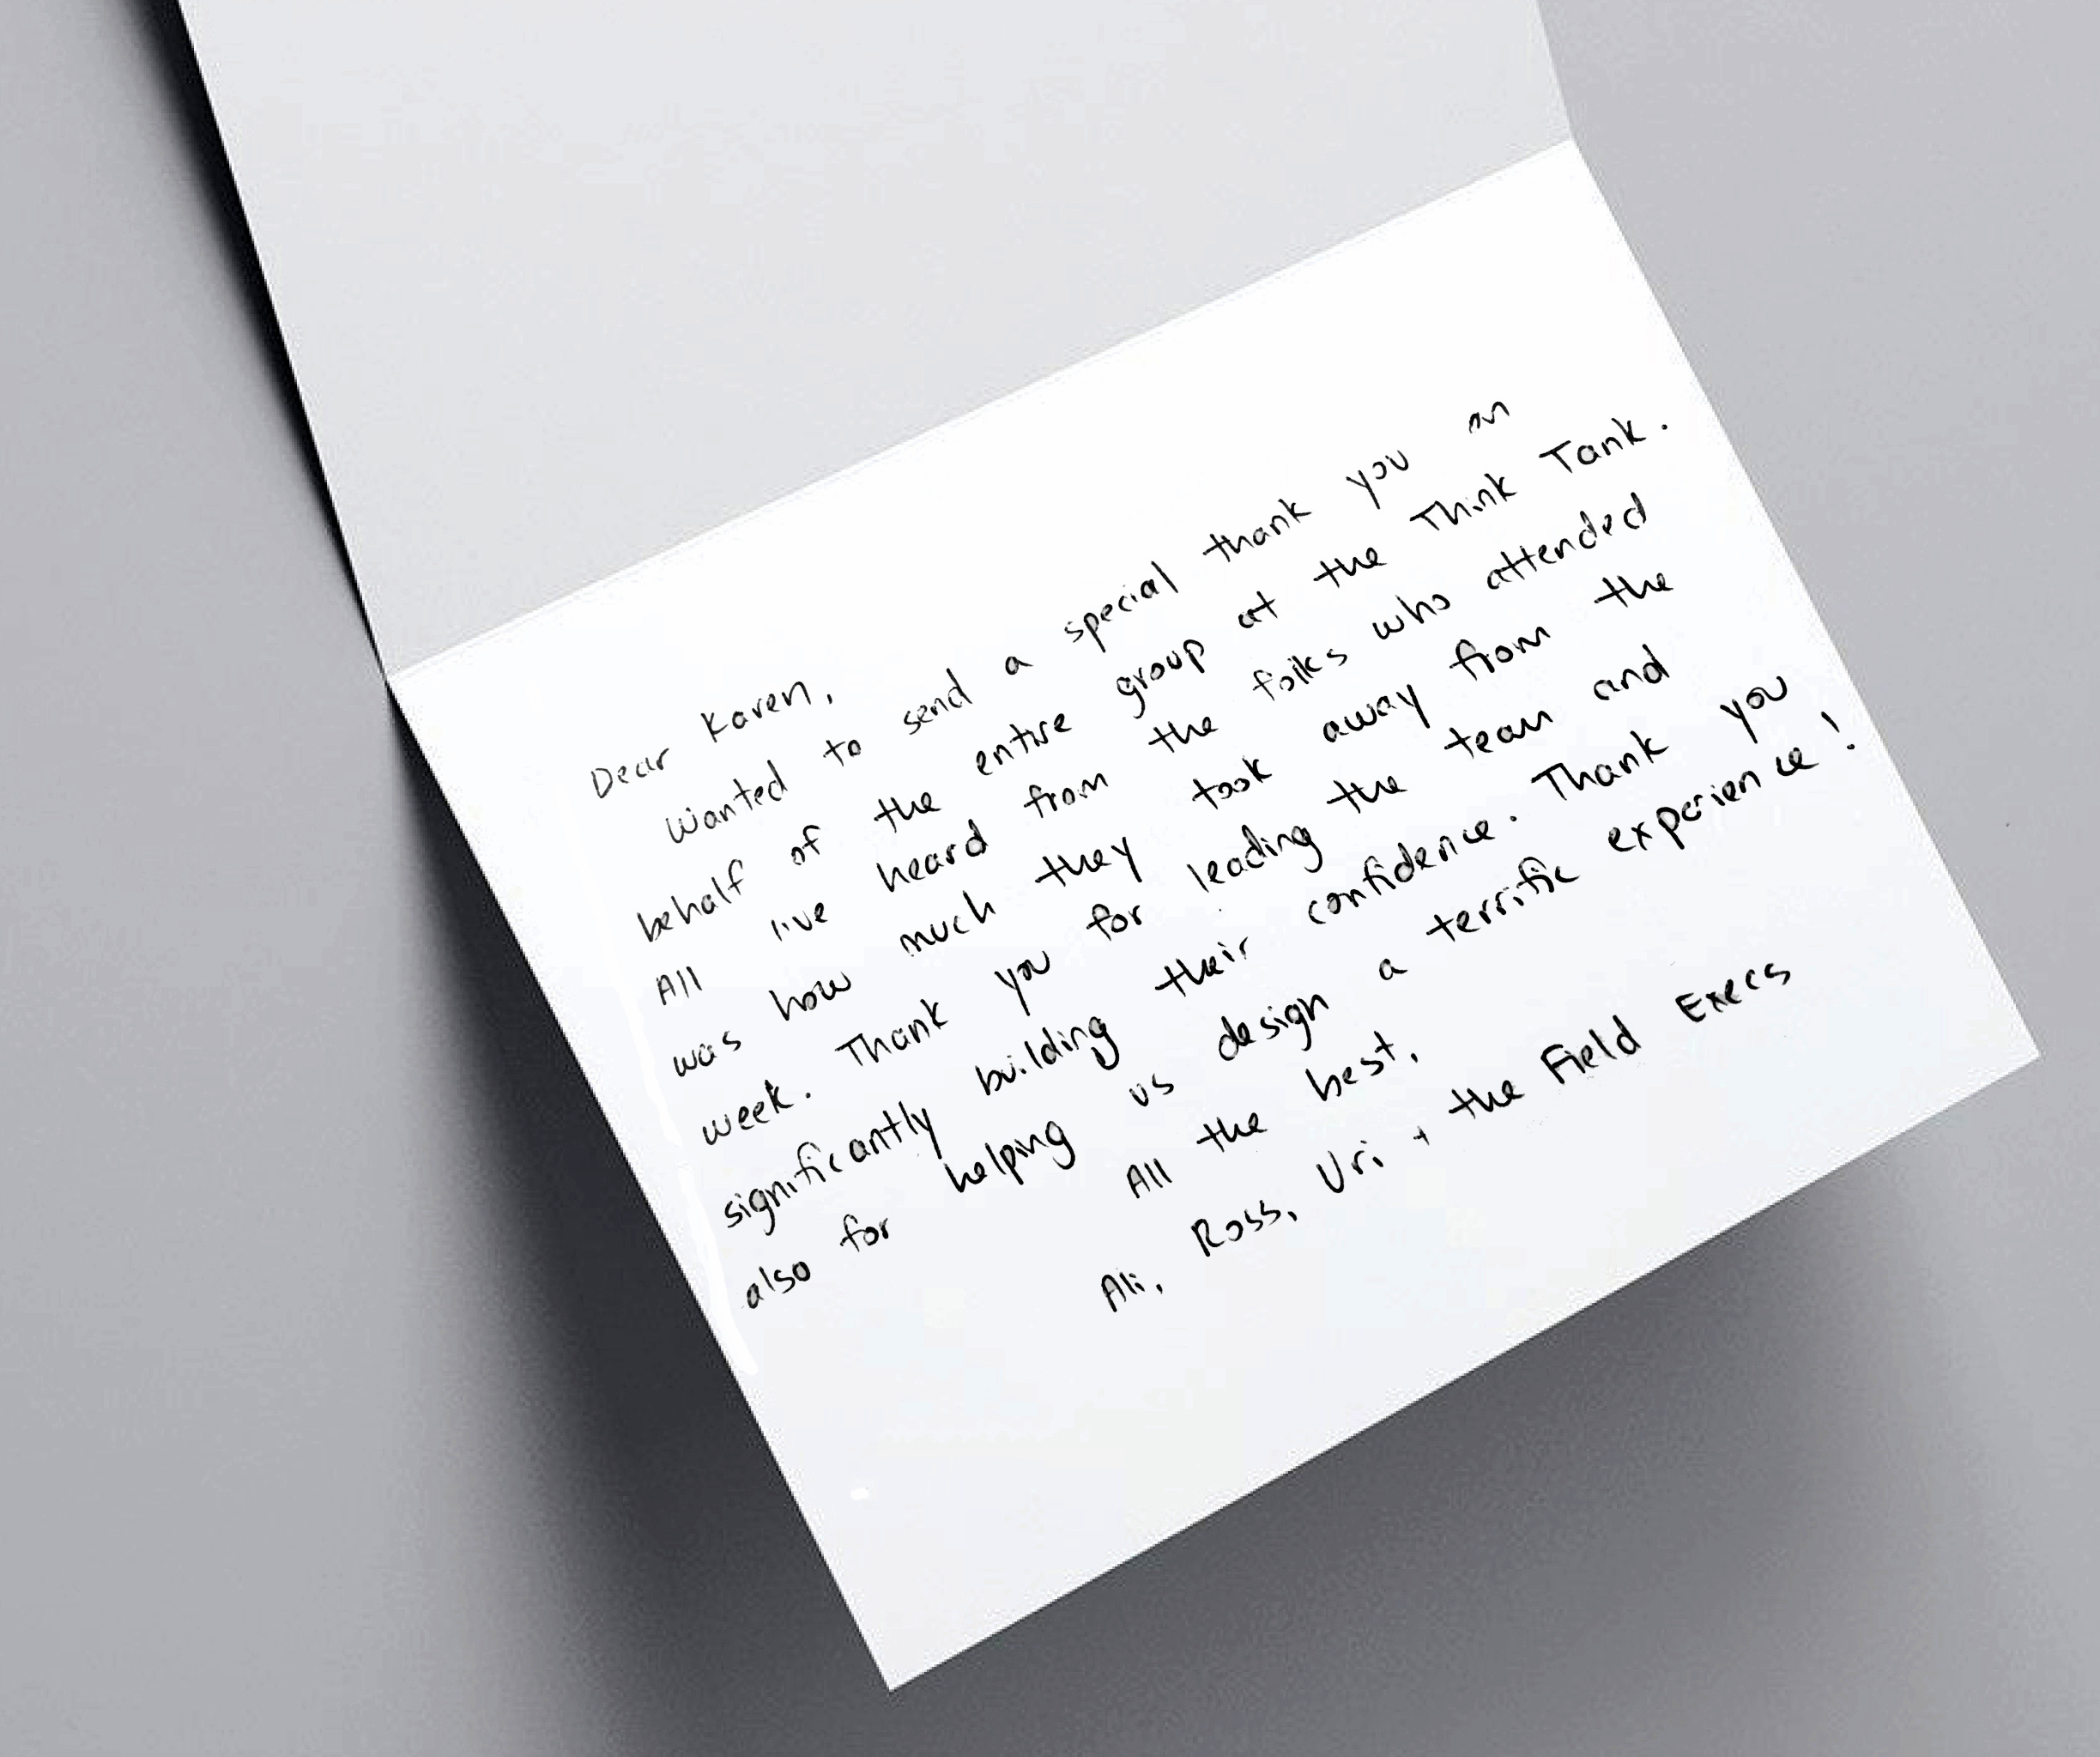 Dear Karen,
Wanted to send a special thank you on
behalf of the entire group at the Think Tank.
All I've heard from the folks who attended
was how much they took away from the
week. Thank you for leading the team and
significantly building their confidence. Thank you
also for helping us design a terrific experience!
All the best,
Ali, Ross, Uri + the Field Execs